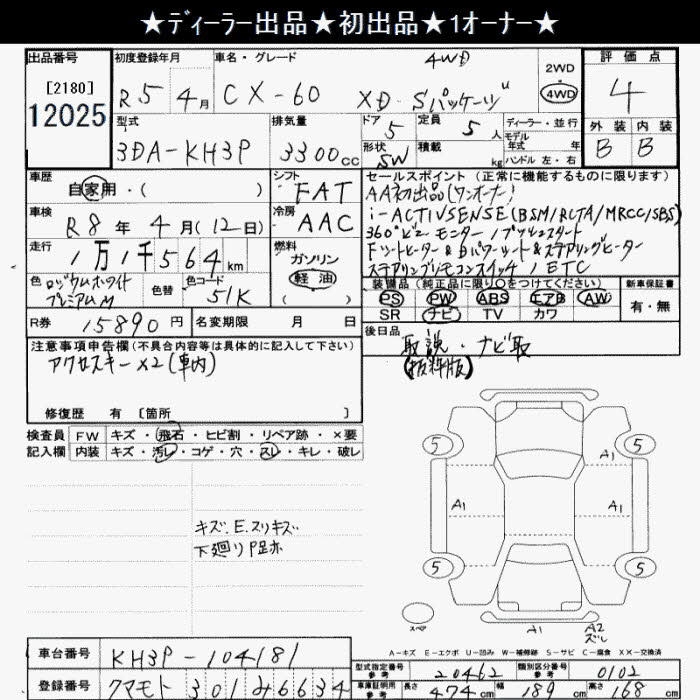 ★ディーラー出品★初出品★1オーナー★
出品番号 初度登録年月 車名・グレード 4WD 2WD 評価点
[2180] R5年4月 CX-60 XD・Sパッケージ 4WD 4
12025 型式 排気量 ドア 定員 ディーラー・並行 外装 内装
3DA-KH3P 3300cc 5 5人 モデル年式 年 B B
形状 SW 積載 kg ハンドル 左・右
車歴 シフト セールスポイント (正常に機能するものに限ります)
自家用・( ) FAT AA初出品(ワンオーナー)
車検 冷房 i-ACTIVSENSE(BSM/RCTA/MRCC/SBS)
R8年4月(12日) AAC 360°ビューモニター/プッシュスタート
走行 燃料 Fシートヒーター&Pパワーシート&ステアリングヒーター
1万1千564km ガソリン ステアリングリモコンスイッチ/ETC
色 ロジウムホワイトプレミアムM 色替 色コード 51K 軽油
装備品(純正品に限り○をつけてください) 新車保証書
PS PW ABS エアB AW 有・無
SR ナビ TV カワ
R券 15890円 名変期限 月 日
後日品
取説・ナビ取
(抜粋版)
注意事項申告欄(不具合内容等は具体的に記入して下さい)
アクセスキー×2(車内)
修復歴 有 [箇所 ]
検査員 FW キズ・飛石・ヒビ割・リペア跡・×要
記入欄 内装 キズ・汚レ・コゲ・穴・スレ・キレ・破レ
キズ、E、スリキズ
下廻りP足ホ
5 5
A1
A1 A1
5 5
スペア A1 A2
ズレ
A-キズ E-エクボ U-凹み W-補修跡 S-サビ C-腐食 XX-交換済
車台番号 KH3P-104181
型式指定番号参考 20462 類別区分番号参考 0102
登録番号 クマモト 301み6634
車庫証明用参考 長さ 474cm 幅 189cm 高さ 168cm